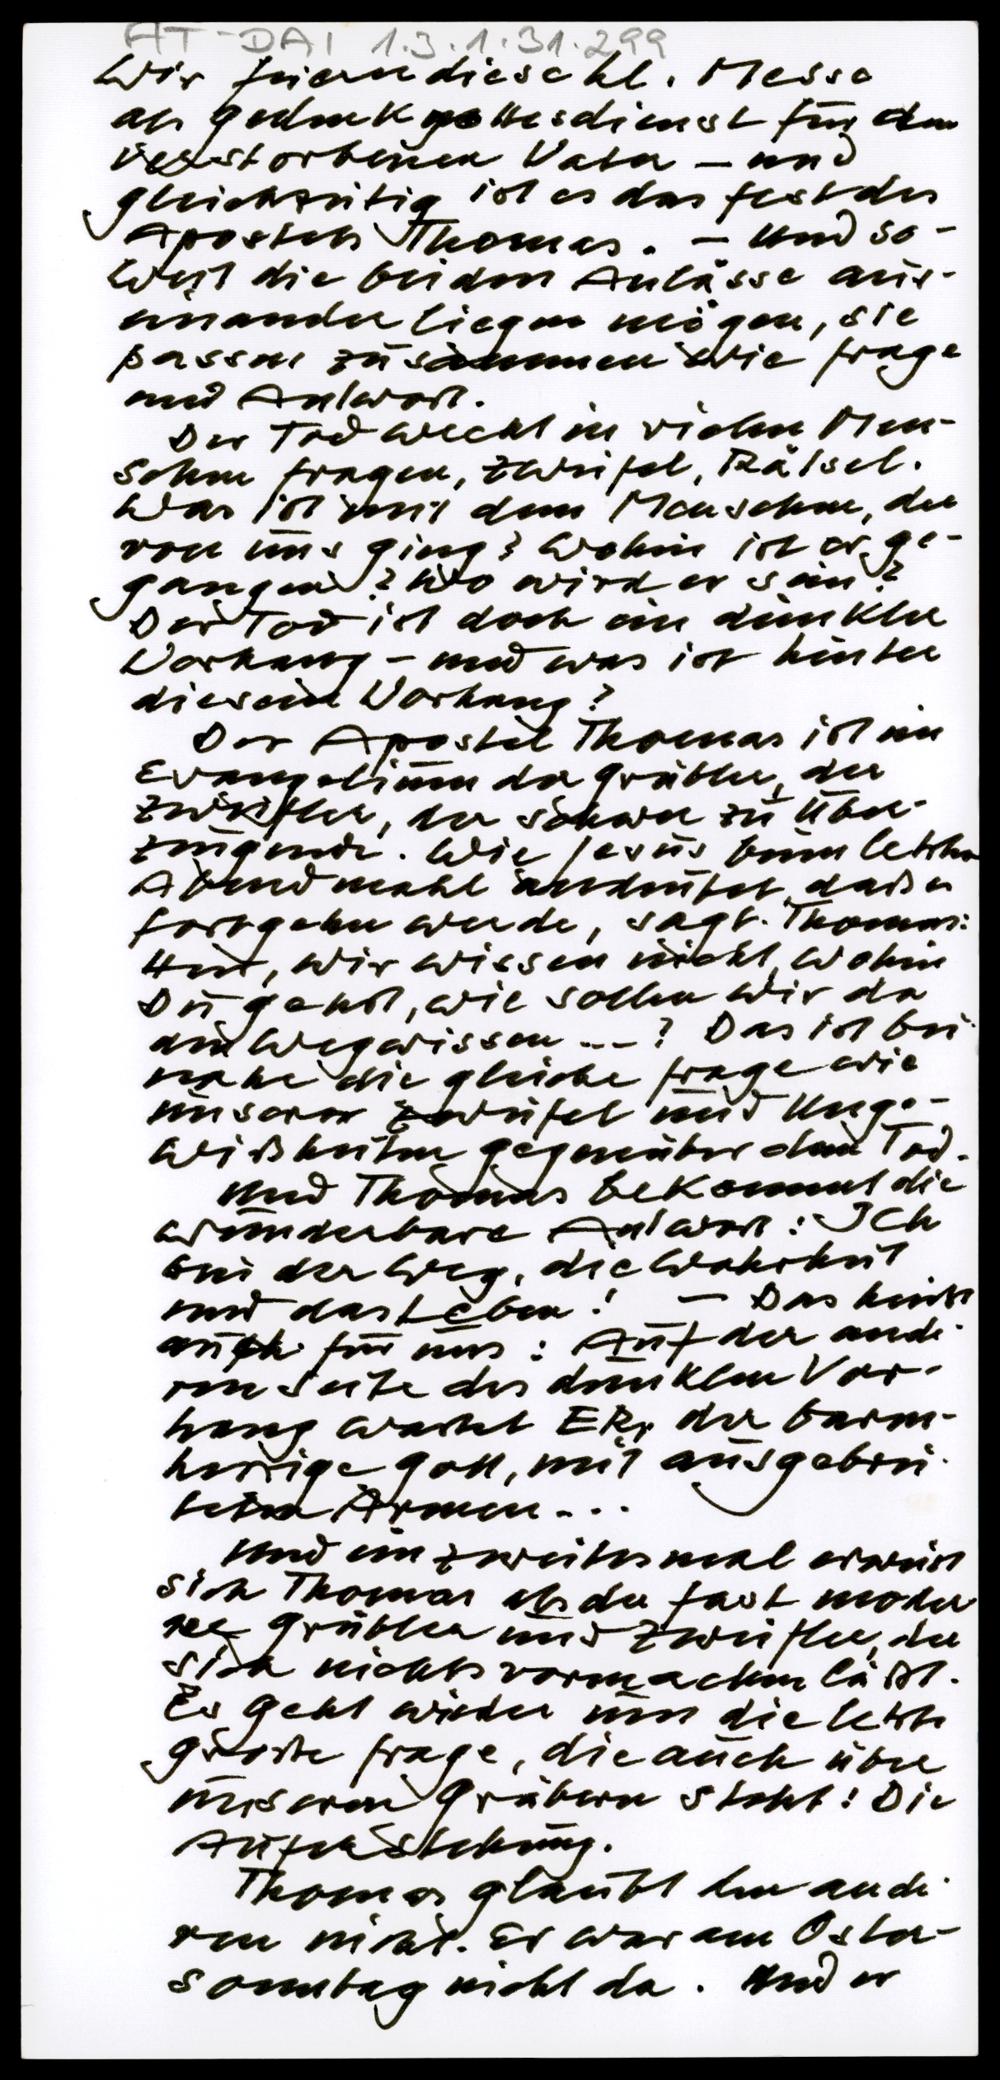 AT-DAI 1.3.1.31.299
Wir feiern diese hl. Messe
als Gedenkgottesdienst für den
verstorbenen Vater – und
gleichzeitig ist es das Fest des
Apostels Thomas. – Und so-
weit die beiden Anlässe aus-
einander liegen mögen, sie
passen zusammen wie Frage
und Antwort.
Der Tod weckt in vielen Men-
schen Fragen, Zweifel, Rätsel.
Was ist mit dem Menschen, der
von uns ging? Wohin ist er ge-
gangen? Wo wird er sein?
Der Tod ist doch ein dunkler
Vorhang – und was ist hinter
diesem Vorhang?
Der Apostel Thomas ist im
Evangelium der Grübler, der
Zweifler, der schwer zu Über-
zeugende. Wie Jesus beim letzten
Abendmahl andeutet, daß er
fortgehen werde, sagt Thomas:
Herr, wir wissen nicht, wohin
Du gehst, wie sollen wir da
den Weg wissen ---? Das ist bei-
nahe die gleiche Frage wie
unserer Zweifel und Unge-
wißheiten gegenüber dem Tod.
Und Thomas bekommt die
wunderbare Antwort: ICh
bin der Weg, die Wahrheit
und das Leben! – Das heißt
auch für uns: Auf der ande-
ren Seite des dunklen Vor-
hang wartet ER, der barm-
herzige Gott, mit ausgebrei-
teten Armen...
Und ein zweitesmal erweist
sich Thomas als der fast moder
ne Grübler und Zweifler, der
sich nichts vormachen läßt.
Es geht wieder um die letzte
größte Frage, die auch über
unseren Gräbern steht: Die
Auferstehung.
Thomas glaubt den ande-
ren nicht. Er war am Oster-
sonntag nicht da. Und er